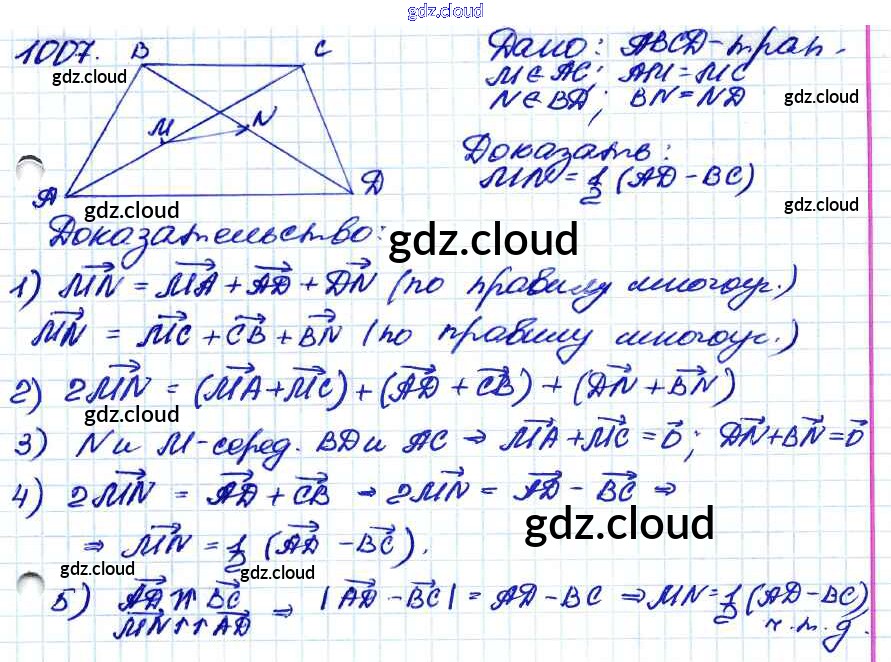 gdz.cloud
1007. B C Дано: ABCD-трап.
gdz.cloud M∈AC; AM=MC
M N N∈BD; BN=ND gdz.cloud
Доказать:
A D MN=1/2(AD-BC)
gdz.cloud gdz.cloud
Доказательство: gdz.cloud
1) MN = MA + AD + DN (по правилу многоуг.)
MN = MC + CB + BN (по правилу многоуг.)
2) 2MN = (MA+MC)+(AD+CB)+(DN+BN)
gdz.cloud
3) N и M-серед. BD и AC ⇒ MA+MC=0; DN+BN=0
4) 2MN = AD+CB → 2MN = AD-BC ⇒
⇒ MN=1/2(AD-BC). gdz.cloud
gdz.cloud gdz.cloud gdz.cloud
5) AD⇈BC ⇒ |AD-BC|=AD-BC ⇒ MN=1/2(AD-BC)
MN↑↑AD ч.т.д.